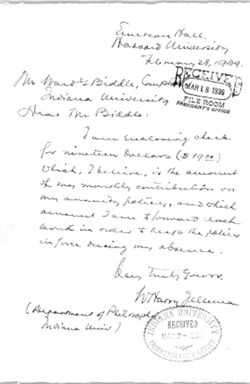 Emerson Hall,
Harvard University
February 28, 1939.
RECEIVED
MAR 18 1939
FILE ROOM
PRESIDENT'S OFFICE
Mr Ward G Biddle,
Indiana University
Dear Mr Biddle:
I am enclosing check
for nineteen dollars ($19.00)
which, I believe, is the amount
of my monthly contribution on
my annuity policy, and which
amount I am to forward each
month in order to keep the policy
in force during my absence.
Very truly yours,
W Harry Jellema
(Department of Philosophy
Indiana Univ)
INDIANA UNIVERSITY
RECEIVED
COMPTROLLER'S OFFICE